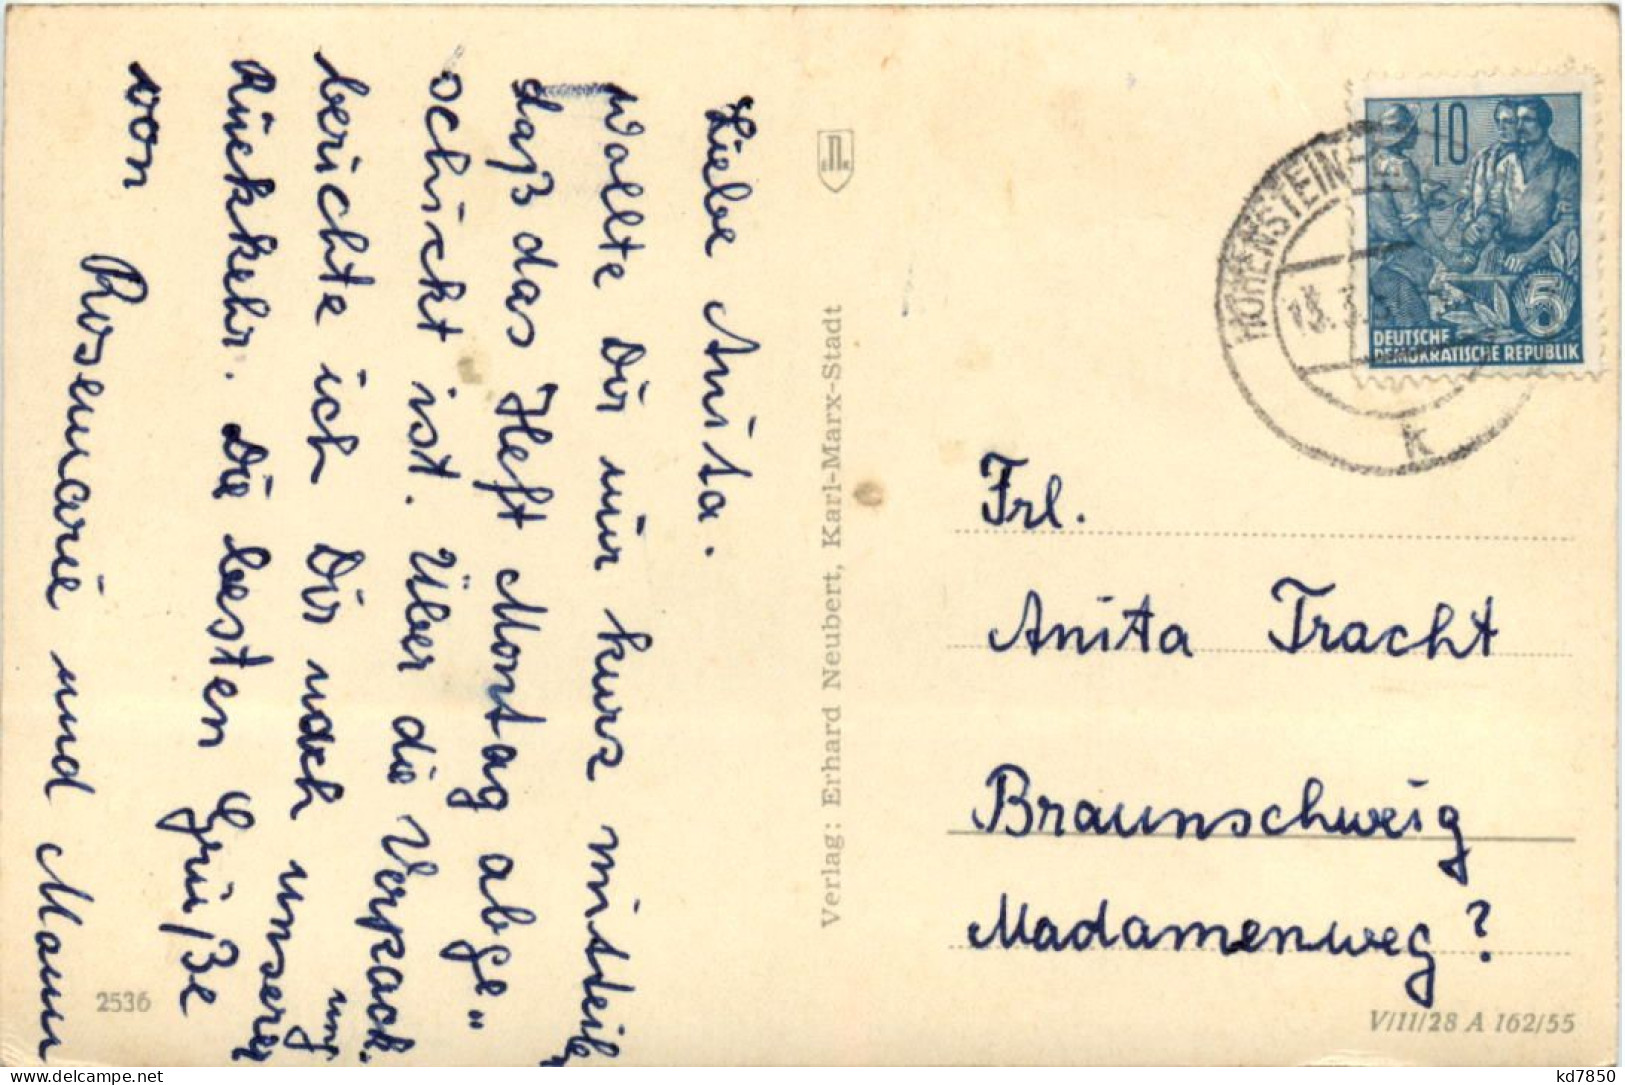 Liebe Anita.
Wollte Dir nur kurz mitteilen
daß das Heft Montag abge"
schickt ist. Über die Verpack.
ung
berichte ich Dir nach unserer
Rückkehr. Die besten Grüße
von Rosemarie und Mann
2536
Verlag: Erhard Neubert, Karl-Marx-Stadt
10
5
DEUTSCHE
DEMOKRATISCHE REPUBLIK
HOHENSTEIN-
k
Frl.
Anita Tracht
Braunschweig
Madamenweg?
V/11/28 A 162/55
kd7850